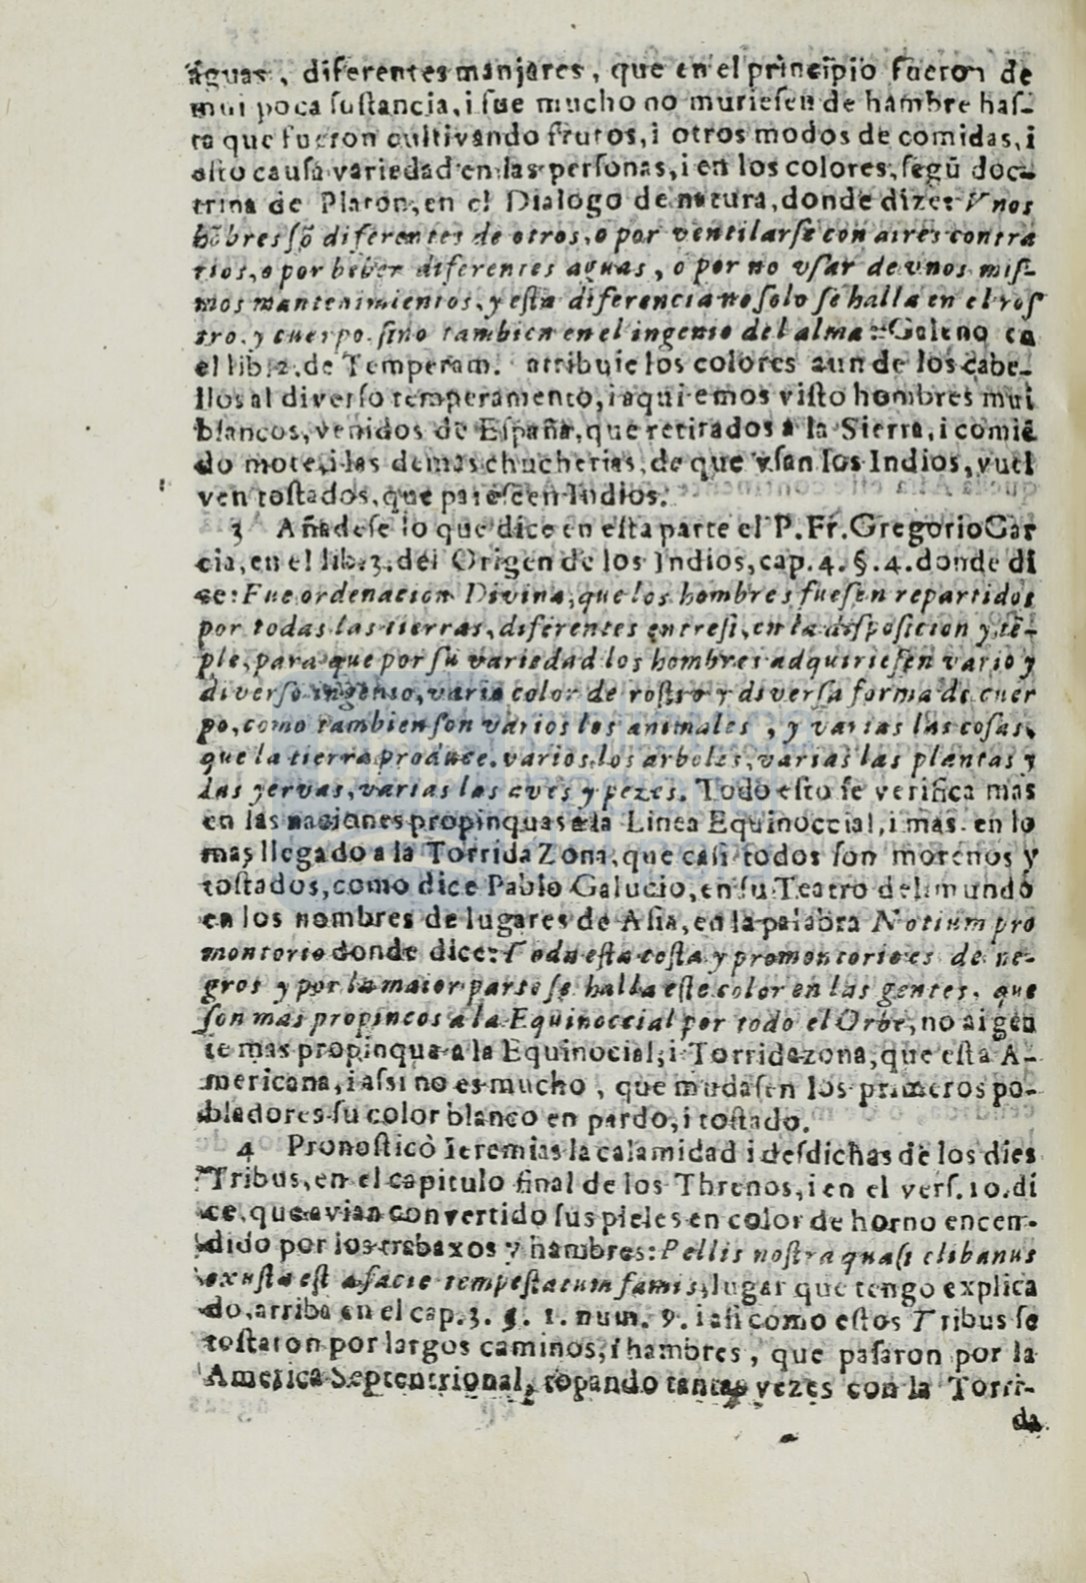 aguas, diferentes manjares, que en el principio fueron de
mui poca ſuſtancia, i fue mucho no murieſen de hambre haſ-
ta que fueron cultivando frutos, i otros modos de comidas, i
eſto cauſa variedad en las perſonas, i en los colores, ſegũ doc-
trina de Platon, en el Dialogo de natura, donde dize: Vnos
hõbres ſõ diferentes de otros, o por ventilarſe con aires contra
rios, o por beber diferentes aguas, o por no vſar de vnos miſ-
mos mantenimientos, y eſta diferencia no ſolo ſe halla en el roſ
tro, y cuerpo, ſino tambien en el ingenio del alma: Galeno en
el lib. 2. de Temperam. atribuie los colores aun de los cabe-
llos al diverſo temperamento, i aqui emos viſto hombres mui
blancos, venidos de España, que retirados a la Sierra, i comiẽ
do mote, i las demas chucherias, de que vſan los Indios, vuel
ven toſtados, que pareſcen Indios.
3 Añadeſe lo que dice en eſta parte el P. Fr. Gregorio Gar
cia, en el lib. 3. del Origen de los Indios, cap. 4. §. 4. donde di
ce: Fue ordenacion Divina, que los hombres fueſen repartidos
por todas las tierras, diferentes entre ſi, en la diſpoſicion y tẽ-
ple, para que por ſu variedad los hombres adquirieſen vario y
diverſo ingenio, vario color de roſtro y diverſa forma de cuer
po, como tambien ſon varios los animales, y varias las coſas,
que la tierra produce, varios los arboles, varias las plantas y
las yervas, varias las aves y pezes. Todo eſto ſe verifica mas
en las naciones propinquas a la Linea Equinoccial, i mas en lo
mas llegado a la Torrida Zona, que caſi todos ſon morenos y
toſtados, como dice Pablo Galucio, en ſu Teatro del mundo
en los nombres de lugares de Aſia, en la palabra Notium pro
montorio donde dice: Toda eſta coſta y promontorio es de ne-
gros y por la maior parte ſe halla eſte color en las gentes, que
ſon mas propincos a la Equinoccial por todo el Orbe, no ai gen
te mas propinqua a la Equinocial, i Torridazona, que eſta A-
mericana, i aſsi no es mucho, que mudaſen los primeros po-
bladores ſu color blanco en pardo, i toſtado.
4 Pronoſticò Ieremias la calamidad i deſdichas de los dies
Tribus, en el capitulo final de los Threnos, i en el verſ. 10. di
ce, que avian convertido ſus pieles en color de horno encen-
dido por los trabaxos y hambres: Pellis noſtra quaſi clibanus
exuſta eſt a facie tempeſtatum famis, lugar que tengo explica
do, arriba en el cap. 3. §. 1. num. 9. i aſi como eſtos Tribus ſe
toſtaron por largos caminos, i hambres, que paſaron por la
America Septentrional, topando tantas vezes con la Torri-
da